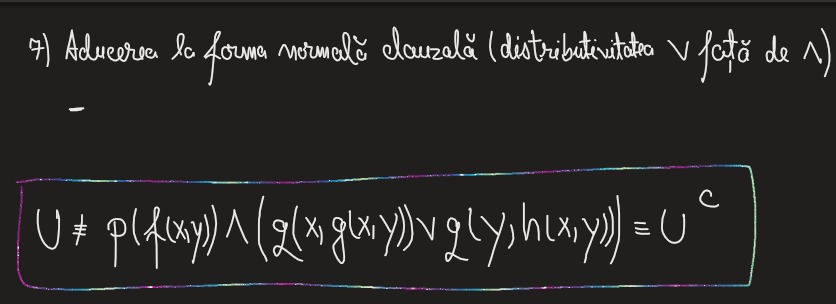 7) Aducerea la forma normală clauzală (distributivitatea ∨ față de ∧)
–
U ≢ p(f(x,y)) ∧ (q(x, g(x,y)) ∨ q(y, h(x,y))) ≡ U^C